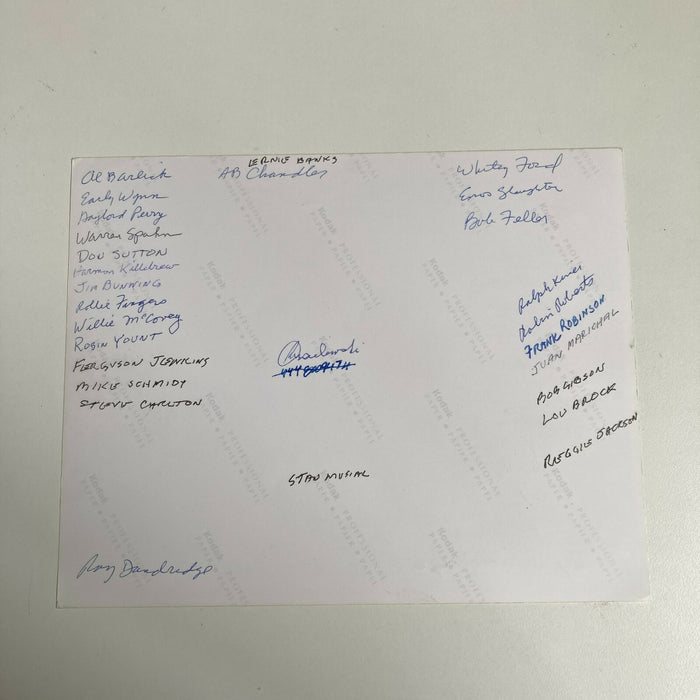 ERNIE BANKS
Al Barlick
AB Chandler
Early Wynn
Gaylord Perry
Warren Spahn
DON SUTTON
Harmon Killebrew
JIM BUNNING
Rollie Fingers
Willie McCovey
ROBIN YOUNT
FERGUSON JENKINS
MIKE SCHMIDT
STEVE CARLTON
STAN MUSIAL
Ray Dandridge
Whitey Ford
Enos Slaughter
Bob Feller
Ralph Kiner
Robin Roberts
FRANK ROBINSON
JUAN MARICHAL
BOB GIBSON
LOU BROCK
REGGIE JACKSON
Kodak PROFESSIONAL
PAPER ★ PAPIER